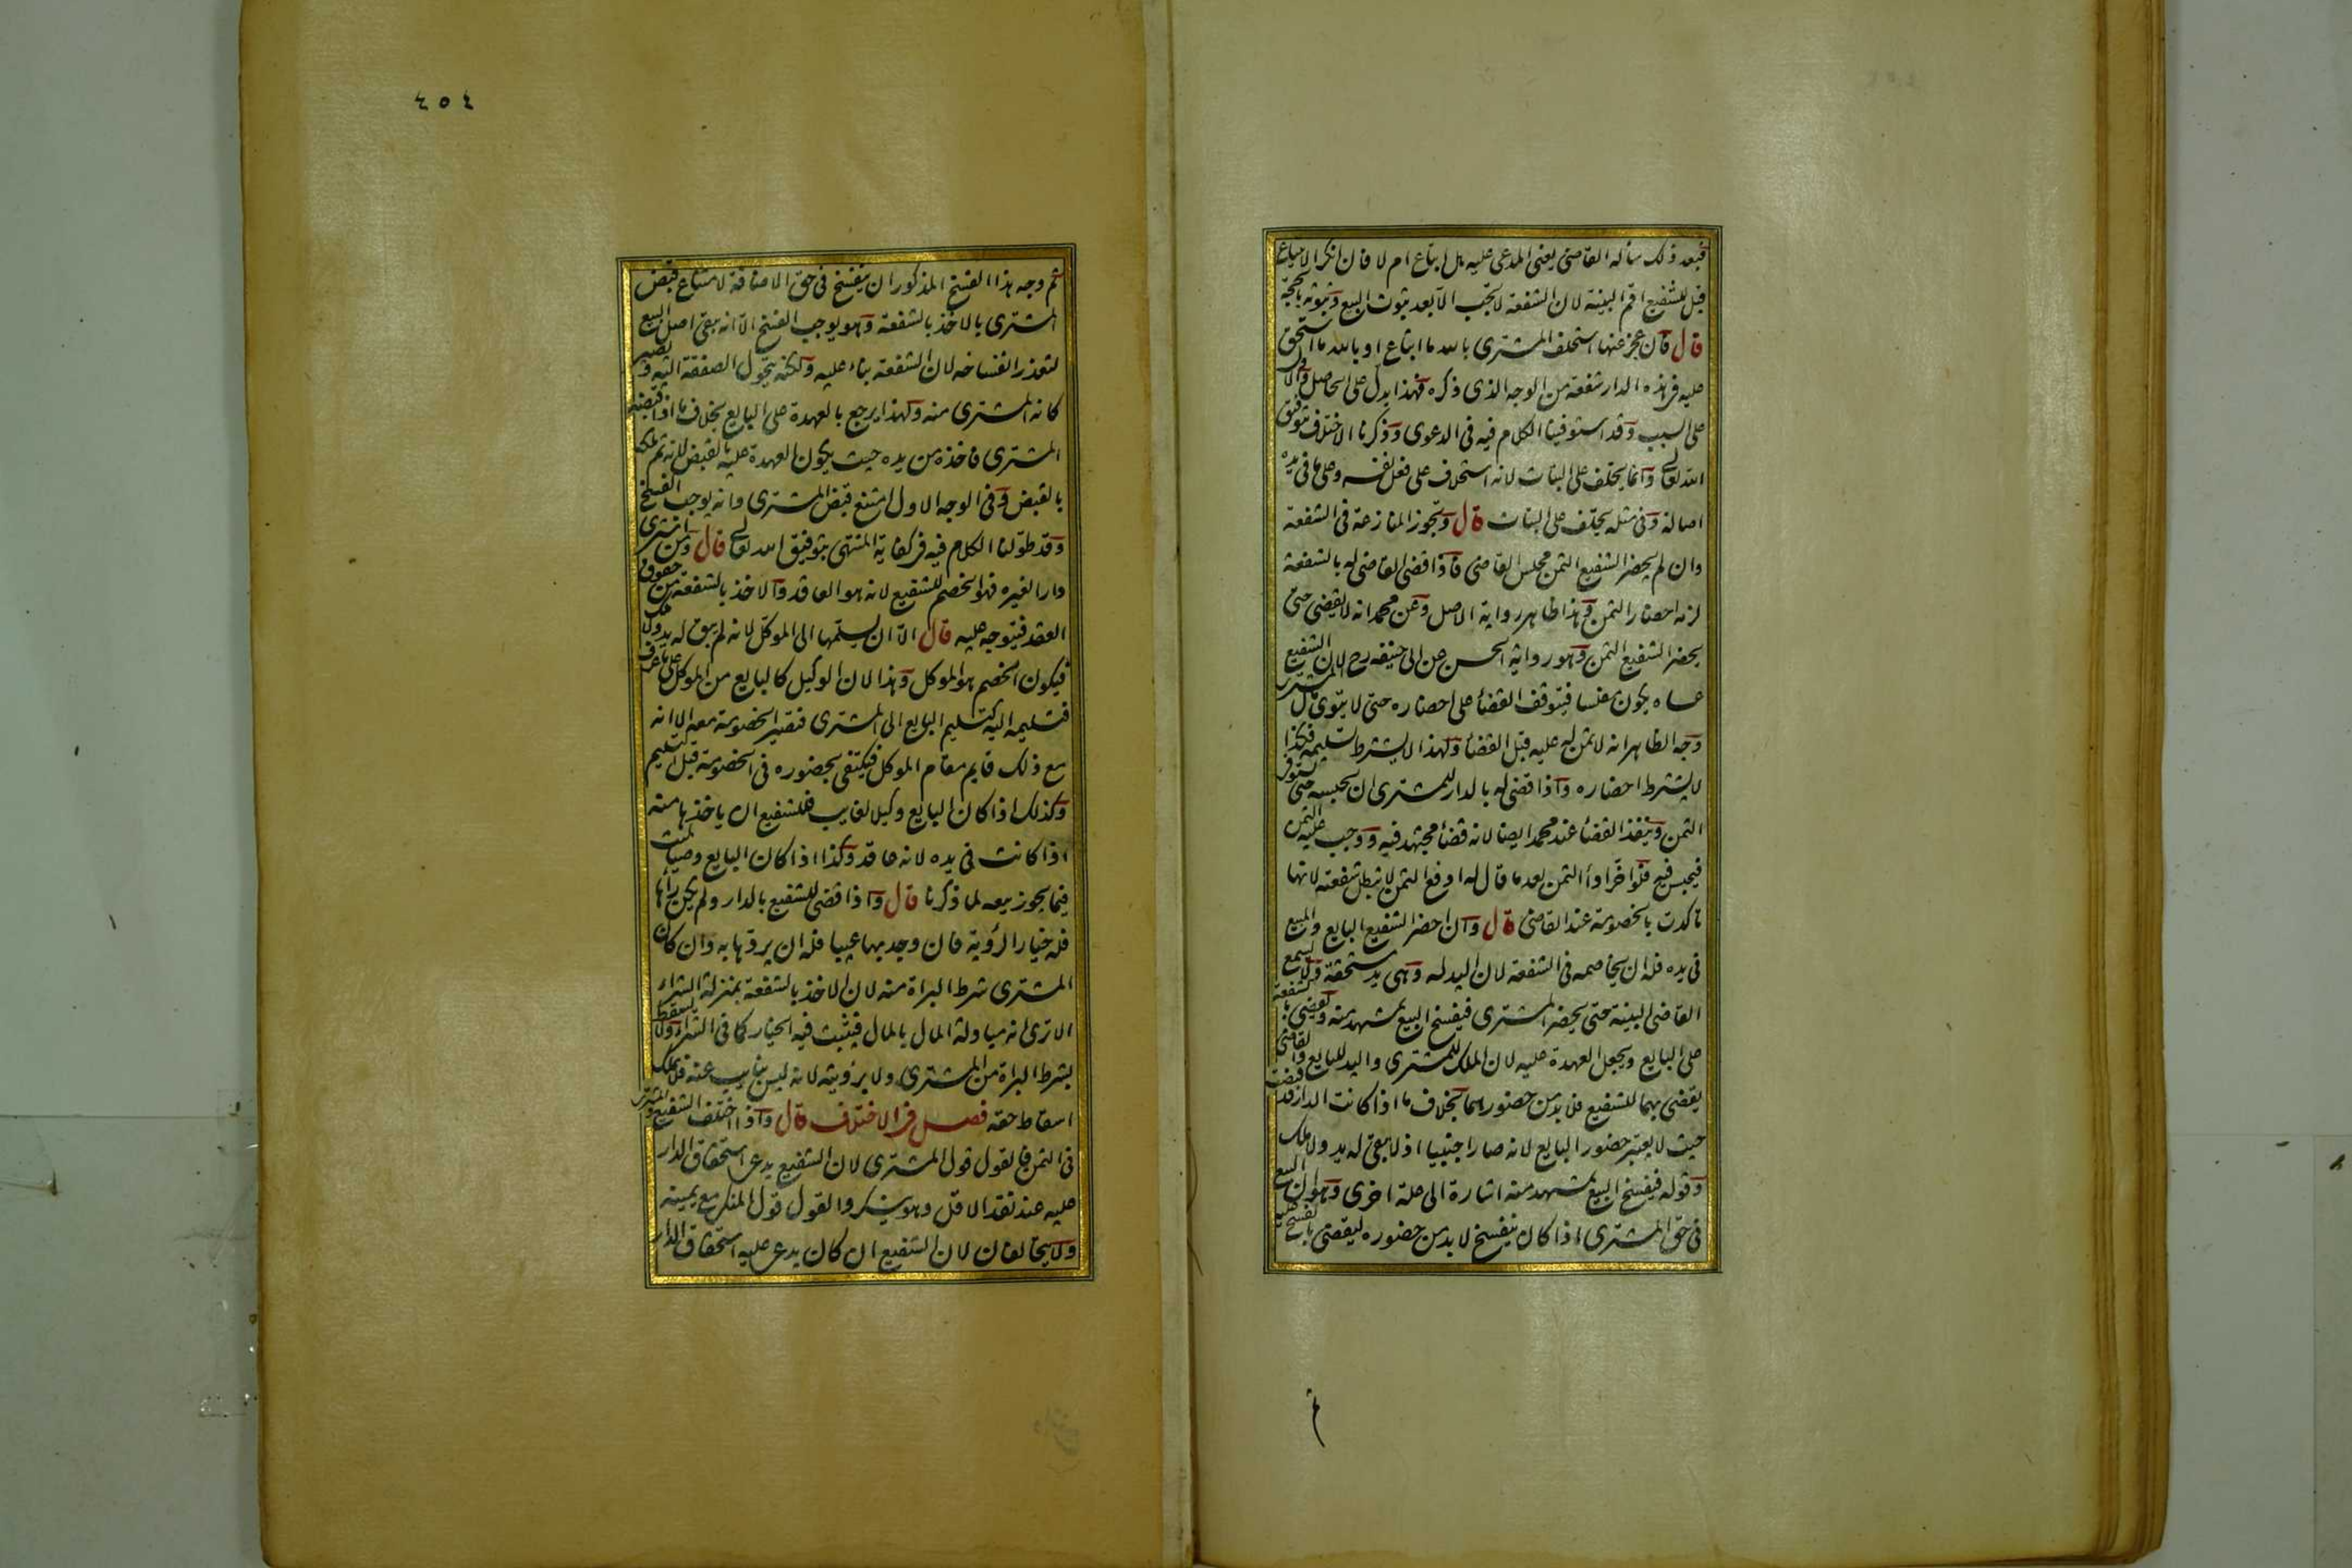 فبعد ذلك سأله القاضى يعنى المدعى عليه هل ابتاع ام لا فان انكر الابتياع
قيل للشفيع اقم البينة لان الشفعة لا تجب الا بعد ثبوت البيع وثبوته بالحجة
قال فان عجز عنها استحلف المشترى بالله ما ابتاع او بالله ما استحق
عليه فى هذه الدار شفعة من الوجه الذى ذكره فهذا يدل على الحاصل والاول
على السبب وقد استوفينا الكلام فيه فى الدعوى وذكرنا الاختلاف بتوفيق
الله تعالى وانما يحلف على البتات لانه استحلاف على فعل نفسه وعلى ما فى يده
اصالة وفى مثله يحلف على البتات قال وتجوز المنازعة فى الشفعة
وان لم يحضر الشفيع الثمن مجلس القاضى فاذا قضى القاضى له بالشفعة
لزمه احضار الثمن وهذا ظاهر رواية الاصل وعن محمد انه لا يقضى حتى
يحضر الشفيع الثمن وهو رواية الحسن عن ابى حنيفه رح لان الشفيع
عساه يكون مفلسا فيتوقف القضاء على احضاره حتى لا يتوى مال المشترى
وجه الظاهر انه لا ثمن له عليه قبل القضاء ولهذا لا يشترط تسليمه فكذا
لا يشترط احضاره واذا قضى له بالدار للمشترى ان يحبسه حتى يستوفى
الثمن وينفذ القضاء عند محمد ايضا لانه قضاء مجتهد فيه ووجب عليه الثمن
فيحبس فيه فلو اخر اداء الثمن بعد ما قال له ادفع الثمن لا تبطل شفعته لانها
تاكدت بالخصومة عند القاضى قال وان احضر الشفيع البايع والمبيع
فى يده فله ان يخاصمه فى الشفعة لان اليد له وهى يد مستحقة ولا يسمع
القاضى البينة حتى يحضر المشترى فيفسخ البيع بمشهد منه ويقضى بالشفعة
على البايع ويجعل العهدة عليه لان الملك للمشترى واليد للبايع والقاضى
يقضى بهما للشفيع فلا بد من حضورهما بخلاف ما اذا كانت الدار قد قبضت
حيث لا يعتبر حضور البايع لانه صار اجنبيا اذ لا يبقى له يد ولا ملك
وقوله فيفسخ البيع بمشهد منه اشارة الى علة اخرى وهو ان البيع
فى حق المشترى اذا كان ينفسخ لا بد من حضوره ليقضى بالفسخ عليه
ثم
٤٥٤
ثم وجه هذا الفسخ المذكور ان ينفسخ فى حق الاضافة لامتناع قبض
المشترى بالاخذ بالشفعة وهو يوجب الفسخ الا انه يبقى اصل البيع
لتعذر انفساخه لان الشفعة بناء عليه ولكنه يتحول الصفقة اليه ويصير
كانه المشترى منه ولهذا يرجع بالعهدة على البايع بخلاف ما اذا قبضه
المشترى فاخذه من يده حيث يكون العهدة عليه بالقبض لانه تم ملكه
بالقبض وفى الوجه الاول امتنع قبض المشترى وانه يوجب الفسخ
وقد طولنا الكلام فيه فى كفاية المنتهى بتوفيق الله تعالى قال ومن اشترى
دارا لغيره فهو الخصم للشفيع لانه هو العاقد والاخذ بالشفعة من حقوق
العقد فيتوجه عليه قال الا ان يسلمها الى الموكل لانه لم يبق له يد ولا ملك
فيكون الخصم هو الموكل وهذا لان الوكيل كالبايع من الموكل على ما عرف
فتسليمه اليه كتسليم البايع الى المشترى فتصير الخصومة معه الا انه
مع ذلك قايم مقام الموكل فيكتفى بحضوره فى الخصومة قبل التسليم
وكذلك اذا كان البايع وكيل الغايب فللشفيع ان ياخذها منه
اذا كانت فى يده لانه عاقد وكذا اذا كان البايع وصيا لميت
فيما يجوز بيعه لما ذكرنا قال واذا قضى للشفيع بالدار ولم يكن راها
فله خيار الرؤية فان وجد بها عيبا فله ان يردها به وان كان
المشترى شرط البراة منه لان الاخذ بالشفعة بمنزلة الشراء
الا ترى انه مبادلة المال بالمال فيثبت فيه الخيار كما فى الشراء ولا يسقط
بشرط البراة من المشترى ولا برؤيته لانه ليس بنايب عنه فلا يملك
اسقاط حقه فصل فى الاختلاف قال واذا اختلف الشفيع والمشترى
فى الثمن فالقول قول المشترى لان الشفيع يدعى استحقاق الدار
عليه عند نقد الاقل وهو ينكر والقول قول المنكر مع يمينه
ولا يتحالفان لان الشفيع ان كان يدعى عليه استحقاق الدار